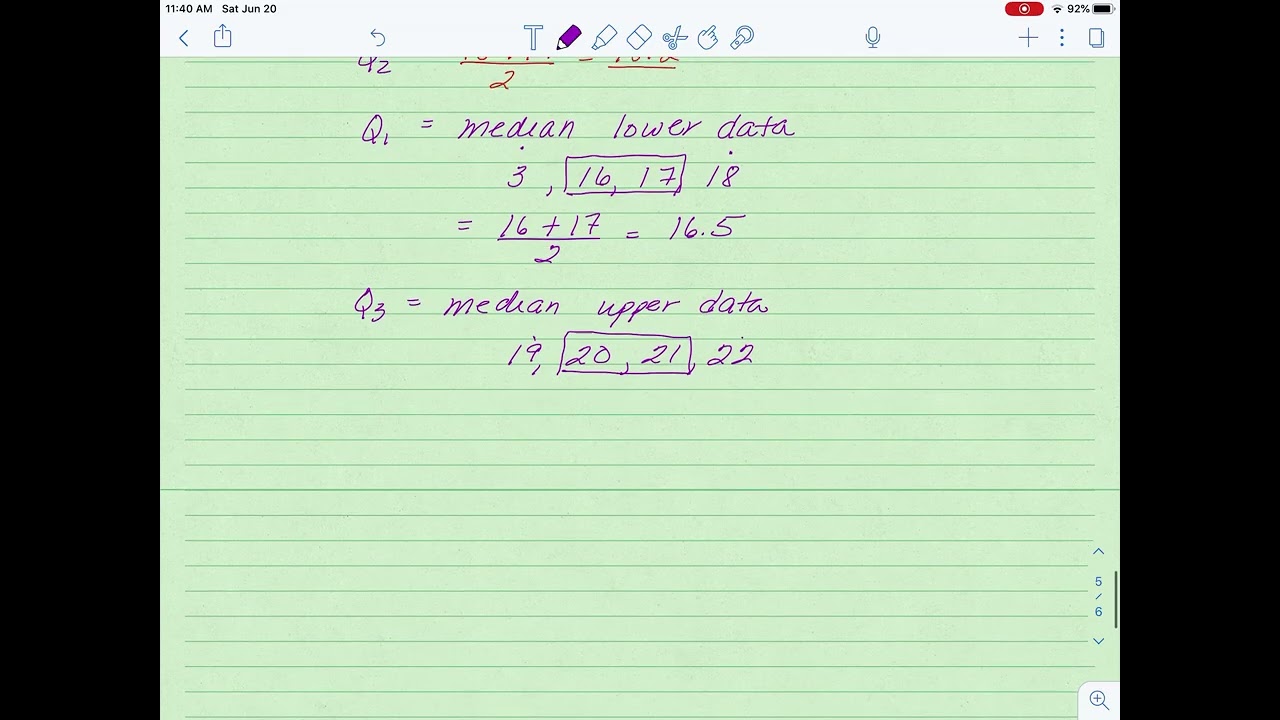 11:40 AM Sat Jun 20 92%
T
Q2
2
Q1 = median lower data
3, 16, 17, 18
= 16 + 17 = 16.5
2
Q3 = median upper data
19, 20, 21, 22
5
/
6